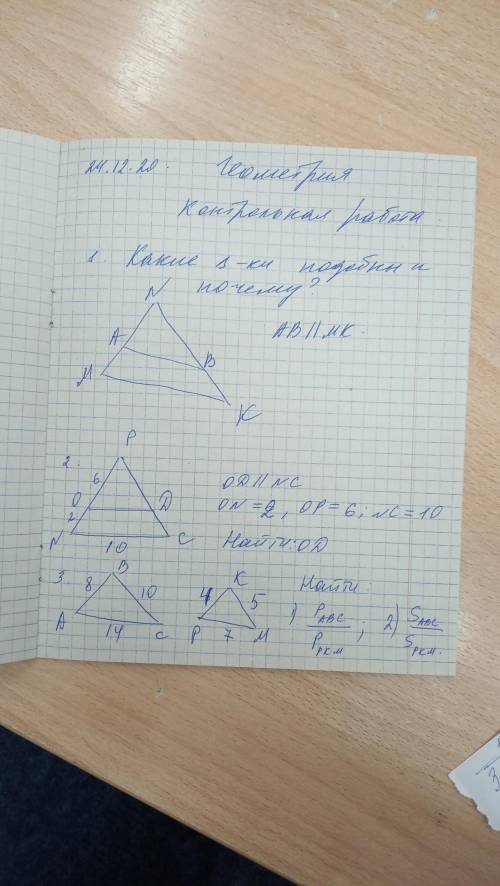 24.12.20. Геометрия
Контрольная работа.
1. Какие Δ-ки подобны и
почему?
N
AB||MK.
A
B
M
K
P
2.
6
OD||NC
O
D
ON=2, OP=6; NC=10
2
N
C
Найти: OD
10
3.
B
K
Найти:
8
10
4
5
1) P ABC / P PKM ; 2) S ABC / S PKM.
A
C
P
M
14
7
3